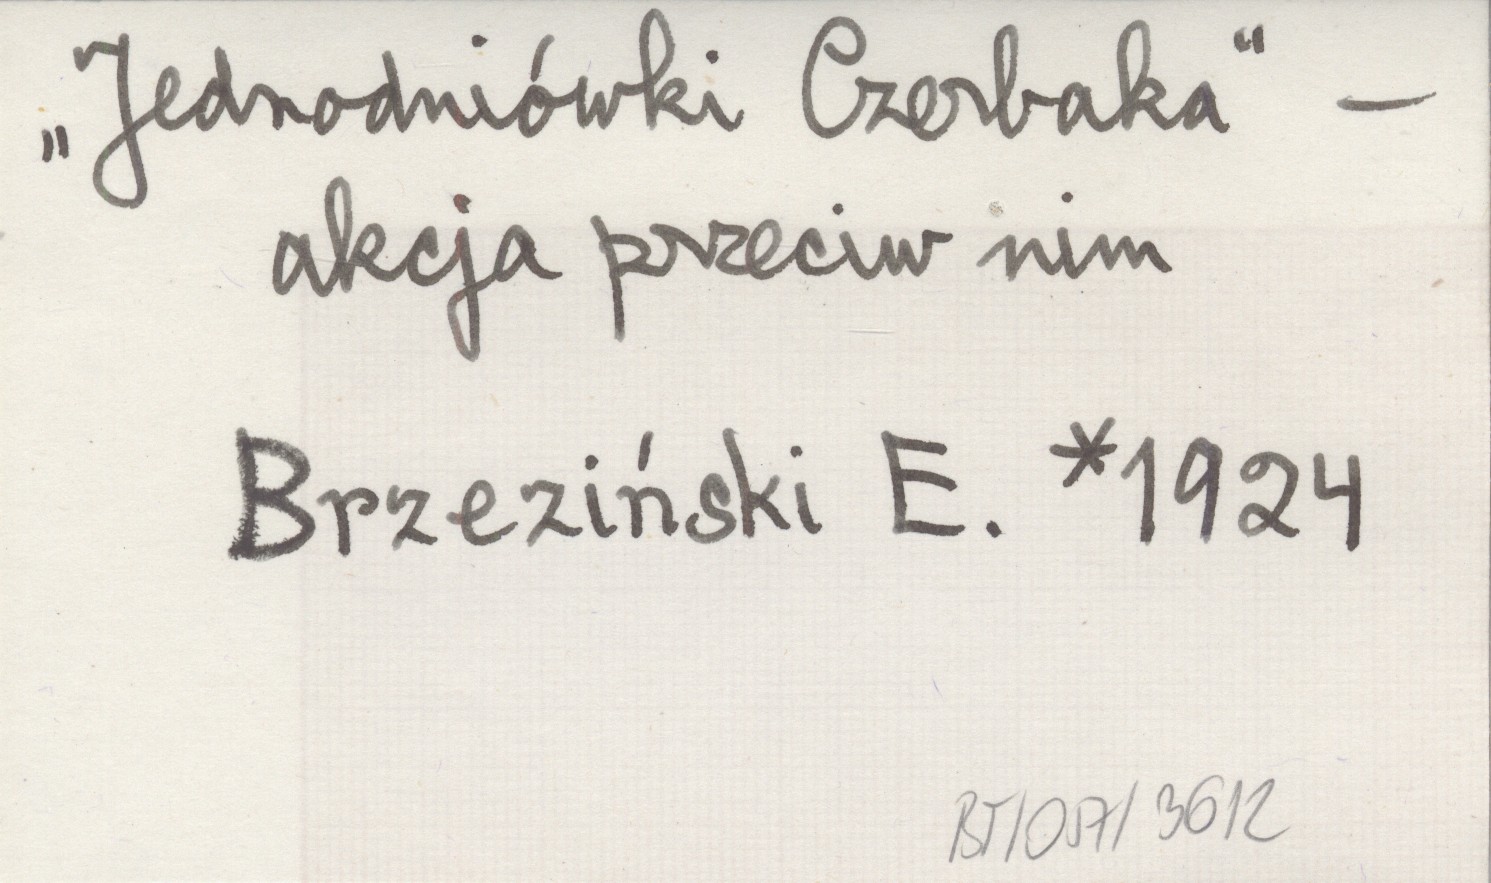 „Jednodniówki Czerbaka“ —
akcja przeciw nim
Brzeziński E. *1924
BT/057/3612